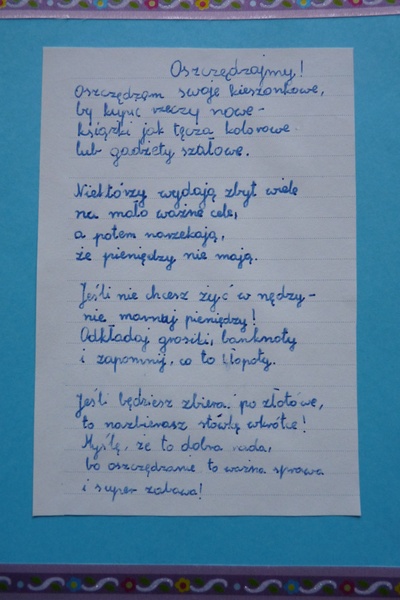 Oszczędzajmy!
Oszczędzam swoje kieszonkowe,
by kupić rzeczy nowe -
książki jak tęcza kolorowe
lub gadżety szałowe.
Niektórzy wydają zbyt wiele
na mało ważne cele,
a potem narzekają,
że pieniędzy nie mają.
Jeśli nie chcesz żyć w nędzy -
nie marnuj pieniędzy!
Odkładaj grosiki, banknoty
i zapomnij, co to kłopoty.
Jeśli będziesz zbierał po złotówce,
to nazbierasz stówkę wkrótce!
Myślę, że to dobra rada,
bo oszczędzanie to ważna sprawa
i super zabawa!